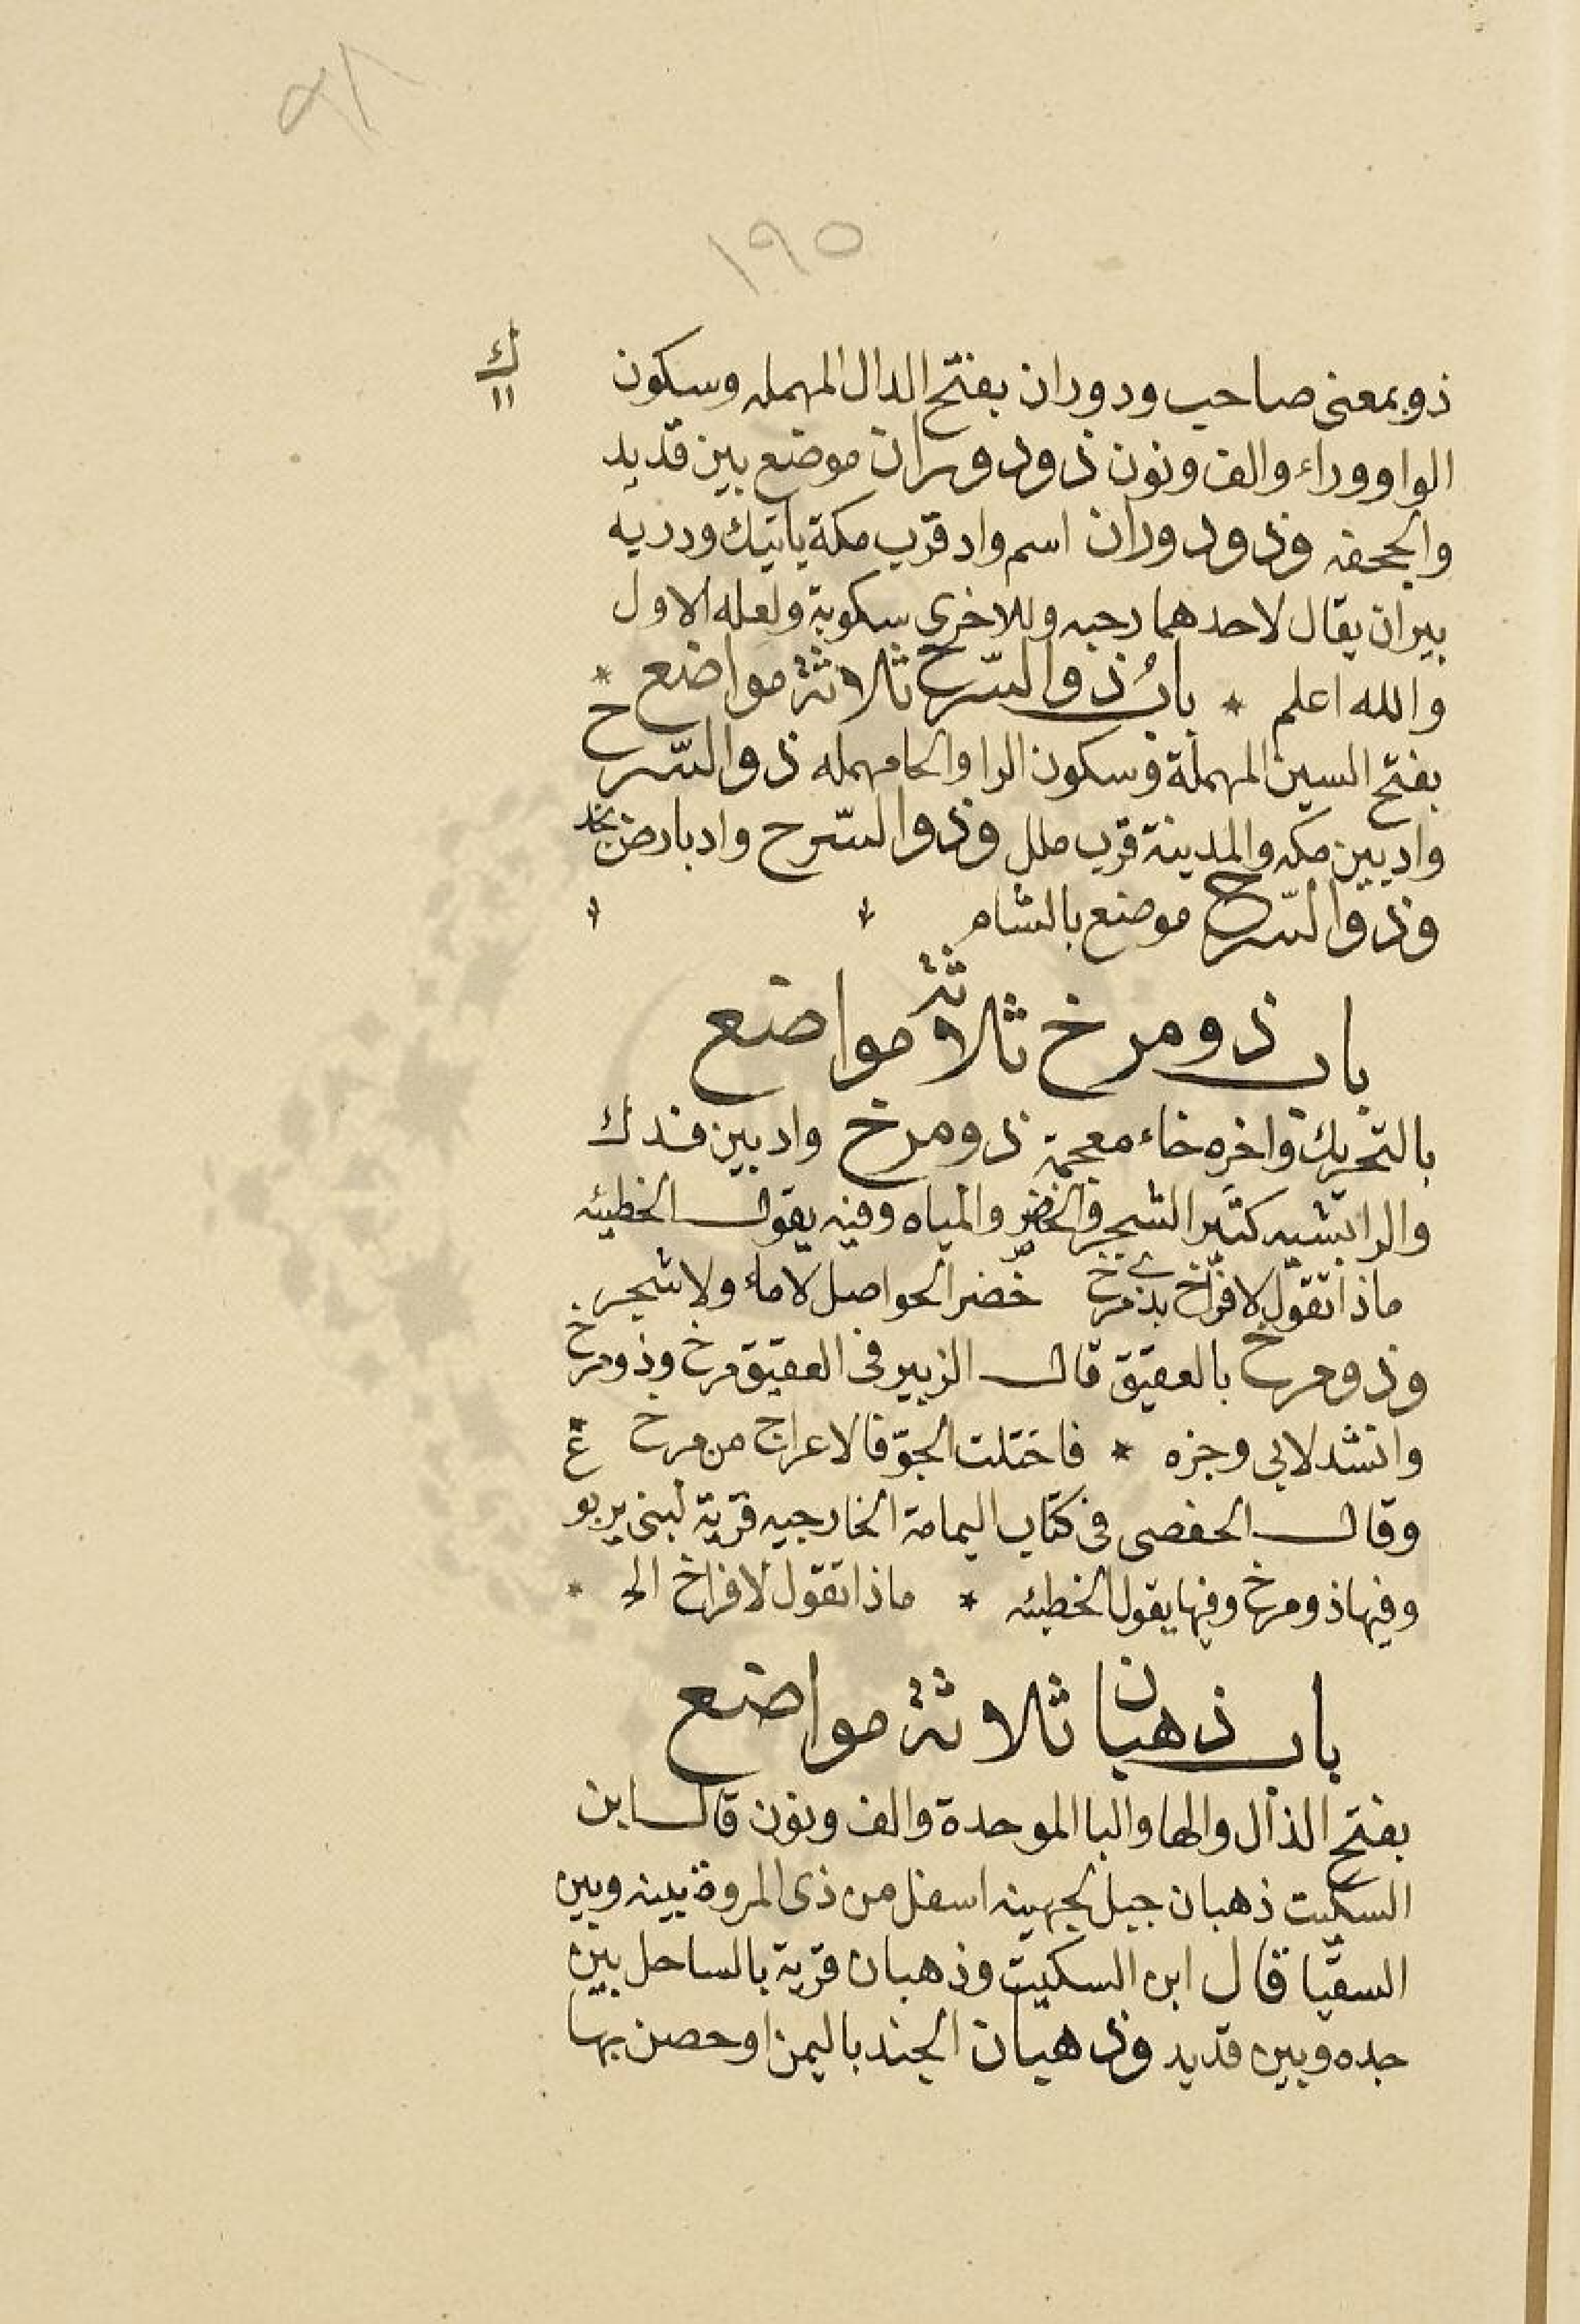 ٩٨
١٩٥
ك
١١
ذو بمعنى صاحب ودوران بفتح الدال المهمله وسكون
الواو وراء والف ونون ذو دوران موضع بين قديد
والجحفه وذو دوران اسم واد قرب مكة ياتيك ودربه
بيران يقال لاحدهما رحبه وللاخرى سكوبة ولعله الاول
والله اعلم * باب ذو السّرح ثلاثة مواضع *
بفتح السين المهملة وسكون الرا والحا مهمله ذو السّرح
واد بين مكه والمدينة قرب ملل وذو السّرح واد بارض نجد
وذو السّرح موضع بالشام
باب ذو مرخ ثلاثة مواضع
بالتحريك واخره خاء معجمة ذو مرخ واد بين فدك
والرابشيه كثير الشجر والخضر والمياه وفيه يقول الخطيئه
ماذا تقول لافراخ بذي مرخ خضر الحواصل لا ماء ولا شجر
وذو مرخ بالعقيق قال الزبير فى العقيق مرخ وذو مرخ
وانشد لابي وجزه * فاختلت الجوّ فالاعراج من مرخ
وقال الحفصى فى كتاب اليمامة الخارجيه قرية لبنى يربوع
وفيها ذو مرخ وفيها يقول الخطيئه * ماذا تقول لافراخ الخ *
باب ذهبان ثلاثة مواضع
بفتح الذال والها والبا الموحدة والف ونون قال ابن
السكيت ذهبان جبل لجهينه اسفل من ذى المروة بينه وبين
السقيّا قال ابن السكيت وذهبان قرية بالساحل بين
جده وبين قديد وذهبان الجند باليمن او حصن بها